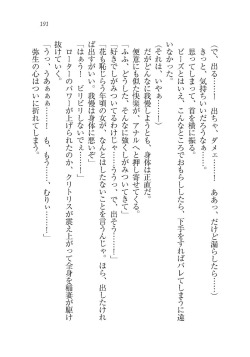 191
（で、出る……！　出ちゃ、ダメェ……！　ああっ、だけど漏らしたら……）
きっと、気持ちいいだろうなぁ……。
思ってしまって、首を横に振る。
ビーズとはいえ、こんなところでおもらししたら、下手をすればバレてしまうに違
いなかった。
（それは、いやぁ……）
だがどんなに我慢しようとも、身体は正直だ。
便意にも似た快楽が、アナルへと押し寄せてくる。
「ふふ、どうした。そんなに強くしがみついてきて」
「好きでしがみついてるわけじゃ……ううっ、で、出そう……」
「花も恥じらう年頃の女が、なんとはしたないことを言うんじゃ。ほら、出したけれ
ば出すがいい。我慢は身体に悪いぞ」
「はぁう！　ビリビリしないでぇ……！」
ローターのパワーが上げられたのか、クリトリスが震え上がって全身を稲妻が駆け
抜けていく。
「うっ、うあぁぁぁ……！　も、もうっ……、むりぃ……！」
弥生の心はついに折れてしまう。